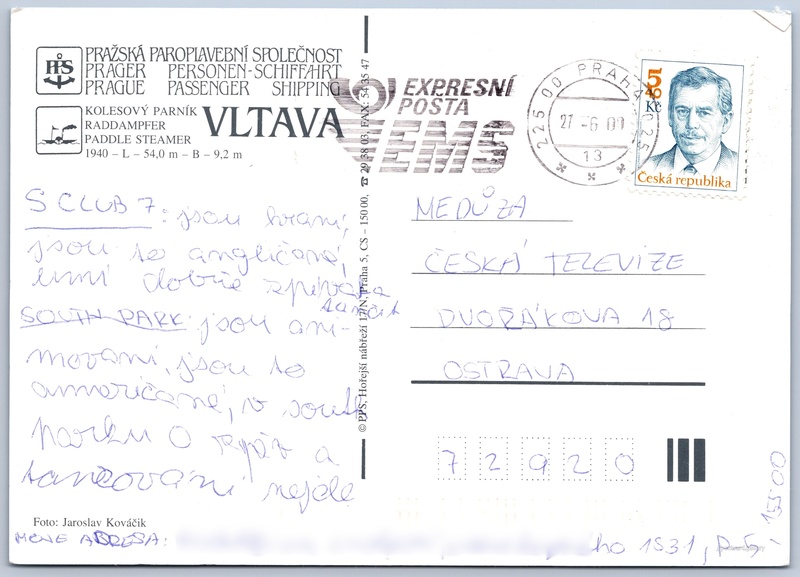 PRAŽSKÁ PAROPLAVEBNÍ SPOLEČNOST
PRAGER PERSONEN-SCHIFFAHRT
PRAGUE PASSENGER SHIPPING
PPS
KOLESOVÝ PARNÍK
RADDAMPFER
PADDLE STEAMER
1940 – L – 54,0 m – B – 9,2 m
VLTAVA
EXPRESNÍ
POSTA
EMS
225 00 PRAHA 025
27 -6 01
13
5 40
Kč
Česká republika
S CLUB 7: jsou hraní,
jsou to angličané,
umí dobře zpívat a
tančit
SOUTH PARK: jsou ani-
movaní, jsou to
američané, v south
parku o zpěv a
tancování nejde
MEDŮZA
ČESKÁ TELEVIZE
DVOŘÁKOVA 18
OSTRAVA
72920
© PPS, Hořejší nábřeží 17/N, Praha 5, CS – 150 00, ☎ 29 38 03, FAX: 54 35 47
Foto: Jaroslav Kováčik
MOJE ADRESA:
ho 1531, P-5,
15500